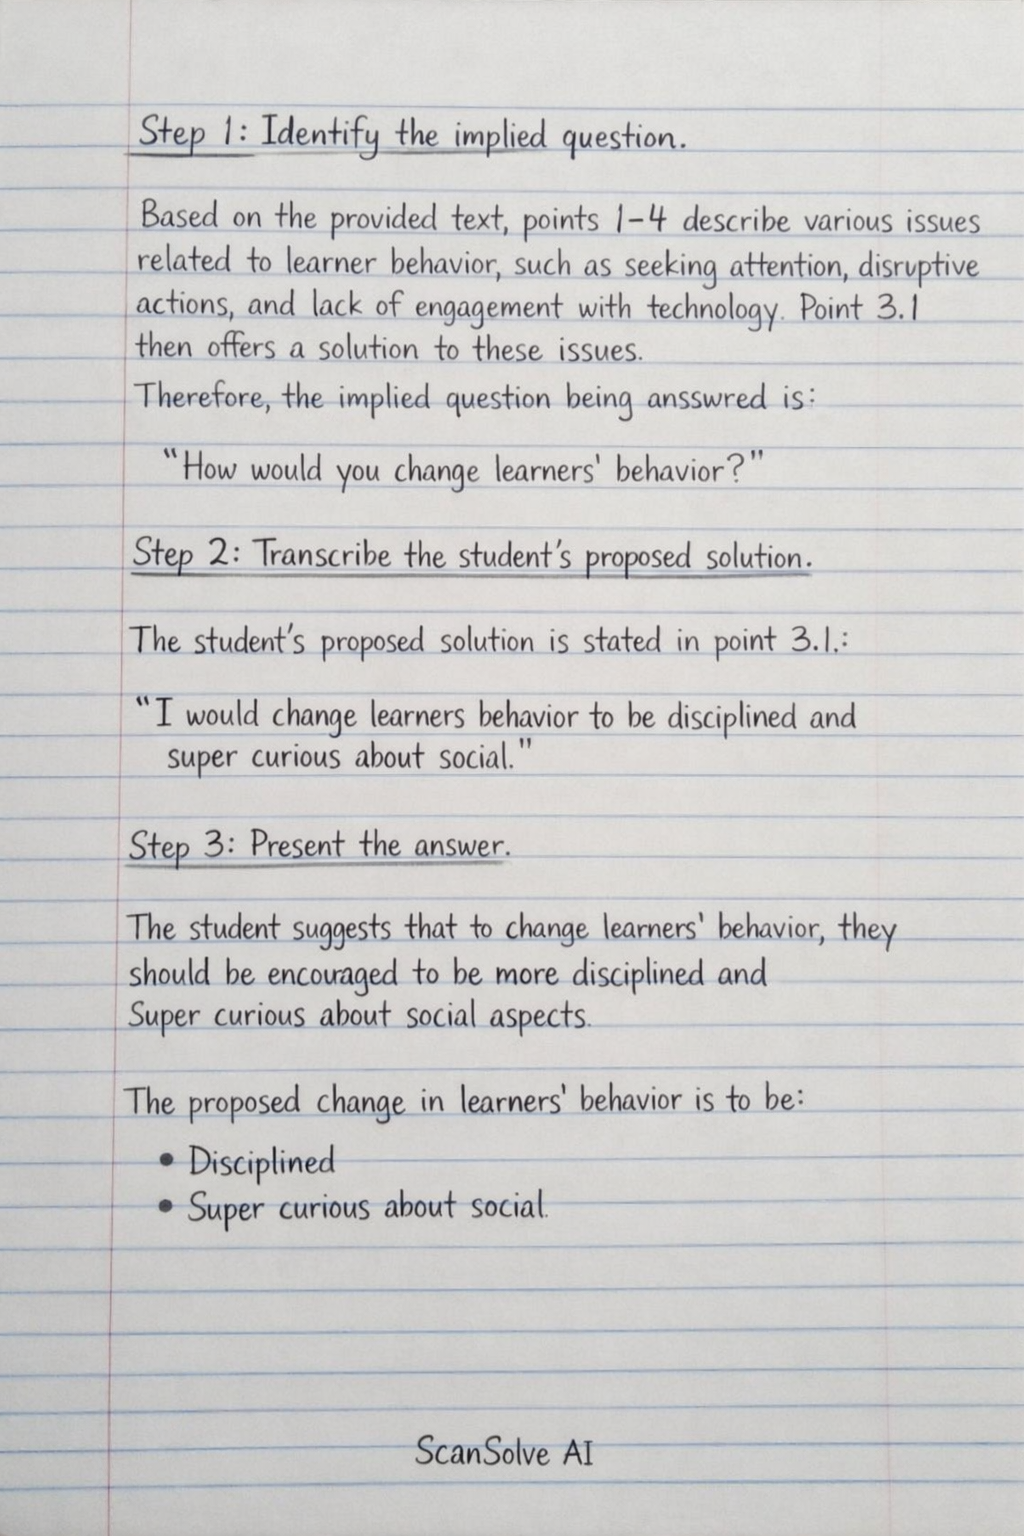 Step 1: Identify the implied question.
Based on the provided text, points 1-4 describe various issues
related to learner behavior, such as seeking attention, disruptive
actions, and lack of engagement with technology. Point 3.1
then offers a solution to these issues.
Therefore, the implied question being ansswred is:
"How would you change learners' behavior?"
Step 2: Transcribe the student's proposed solution.
The student's proposed solution is stated in point 3.1.:
"I would change learners behavior to be disciplined and
super curious about social."
Step 3: Present the answer.
The student suggests that to change learners' behavior, they
should be encouraged to be more disciplined and
Super curious about social aspects.
The proposed change in learners' behavior is to be:
• Disciplined
• Super curious about social.
ScanSolve AI